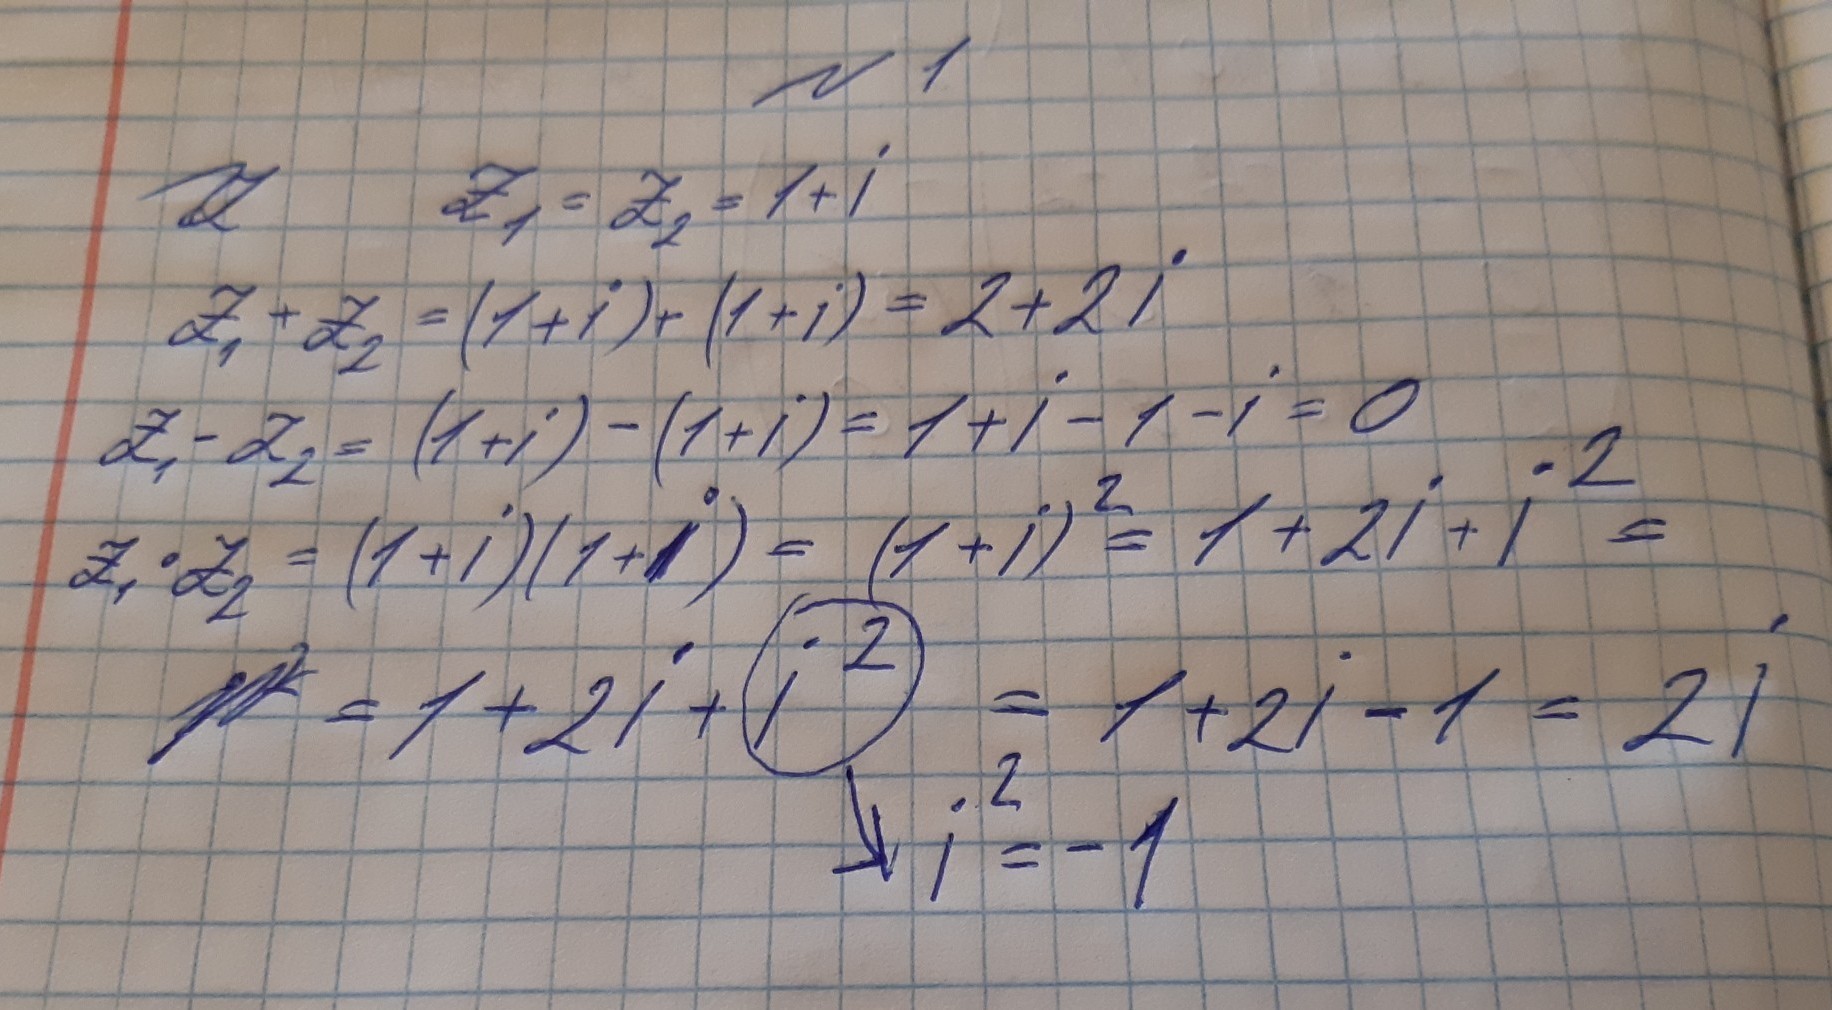 № 1
Z₁ = Z₂ = 1+i
Z₁ + Z₂ = (1+i)+(1+i) = 2+2i
Z₁ - Z₂ = (1+i) - (1+i) = 1+i-1-i = 0
Z₁·Z₂ = (1+i)(1+i) = (1+i)² = 1+2i+i² =
= 1+2i+i² = 1+2i-1 = 2i
i² = -1